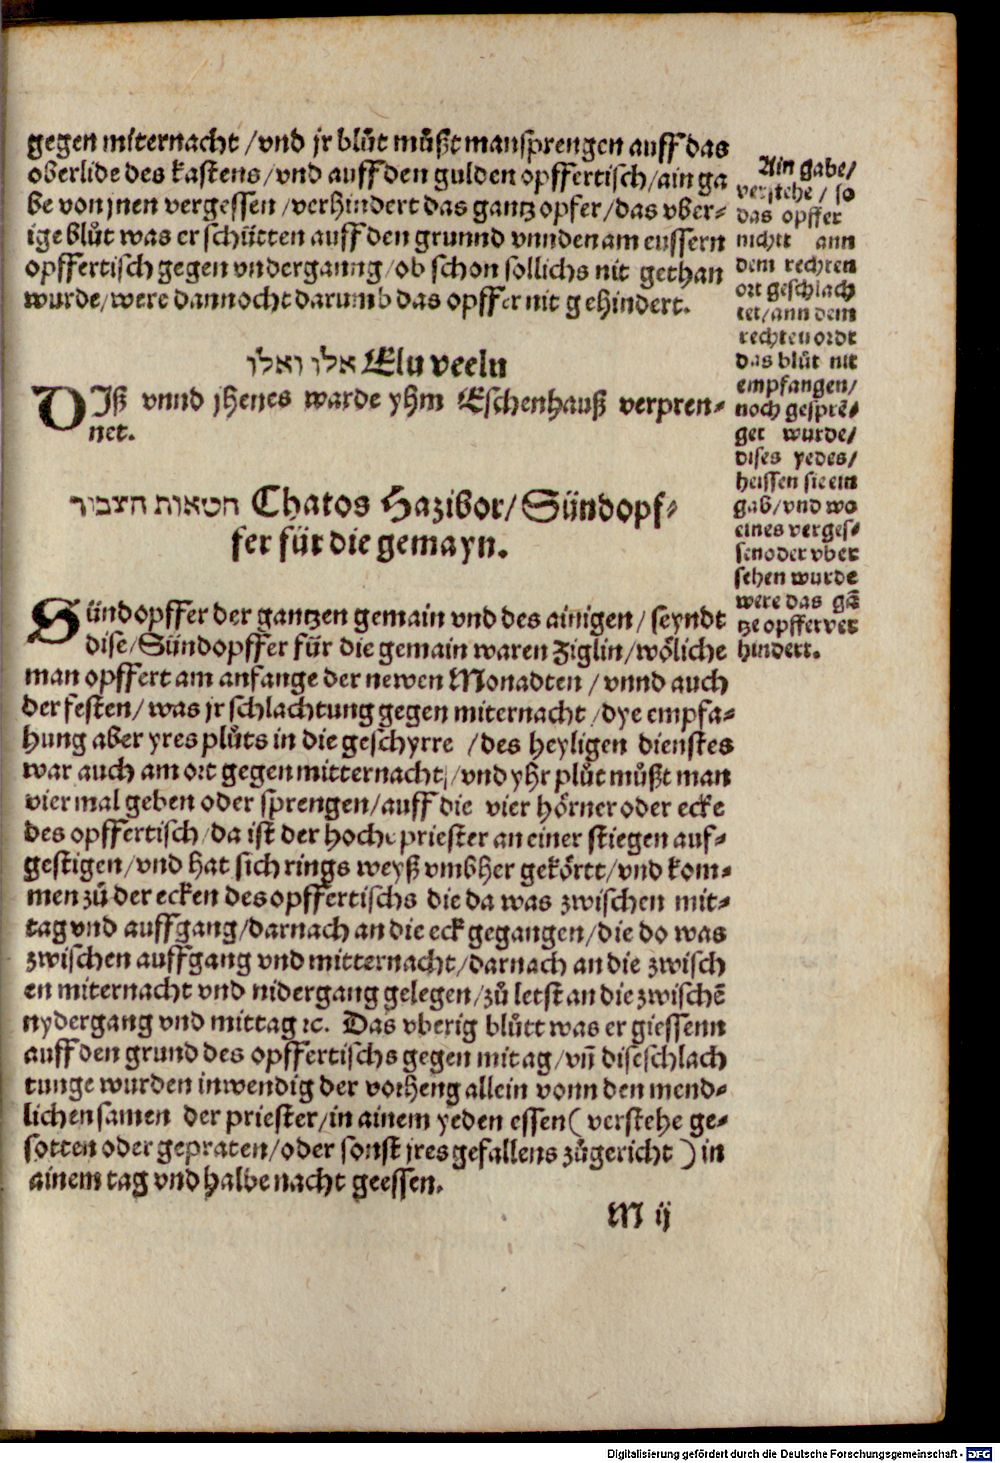 gegen miternacht /vnd jr blůt můßt mansprengen auff das
oberlide des kastens/vnd auff den gulden opffertisch/ain ga
be von jnen vergessen /verhindert das gantz opfer/das vber-
ige blůt was er schütten auff den grunnd vnnden am eussern
opffertisch gegen vndergang/ob schon sollichs nit gethan
wurde/were dannocht darumb das opffer nit gehindert.
אלו ואלו Elu veelu
DIß vnnd jhenes warde yhm Eschenhauß verpren-
net.
חטאות הצבור Chatos Hazibor/Sündopf-
fer für die gemayn.
Sündopffer der gantzen gemain vnd des ainigen/ seyndt
dise/Sündopffer für die gemain waren Ziglin/wöliche
man opffert am anfange der newen Monadten /vnnd auch
der festen/was jr schlachtung gegen miternacht/dye empfa-
hung aber yres plůts in die geschyrre /des heyligen dienstes
war auch am ort gegen mitternacht/vnd yhr plůt můßt man
vier mal geben oder sprengen/auff die vier hörner oder ecke
des opffertisch/da ist der hoche priester an einer stiegen auf-
gestigen/vnd hat sich rings weyß vmbher gekörtt/vnd kom-
men zů der ecken des opffertischs die da was zwischen mit-
tag vnd auffgang/darnach an die eck gegangen/die do was
zwischen auffgang vnd mitternacht/darnach an die zwisch
en miternacht vnd nidergang gelegen/zů letst an die zwischē
nydergang vnd mittag ꝛc. Das vberig blůtt was er giessenn
auff den grund des opffertischs gegen mitag/vñ dise schlach
tunge wurden inwendig der vorheng allein vonn den mend-
lichen samen der priester/in ainem yeden essen( verstehe ge-
sotten oder gepraten/oder sonst jres gefallens zůgericht ) in
ainem tag vnd halbe nacht geessen.
M ij
Ain gabe/
verstehe / so
das opffer
nichtt ann
dem rechten
ort geschlach
tet/ann dem
rechten ordt
das blůt nit
empfangen/
noch gesprē-
get wurde/
dises yedes/
heissen sie ein
gab/vnd wo
eines verges-
sen oder vber
sehen wurde
were das gā
tze opffer ver
hindert.
Digitalisierung gefördert durch die Deutsche Forschungsgemeinschaft - DFG